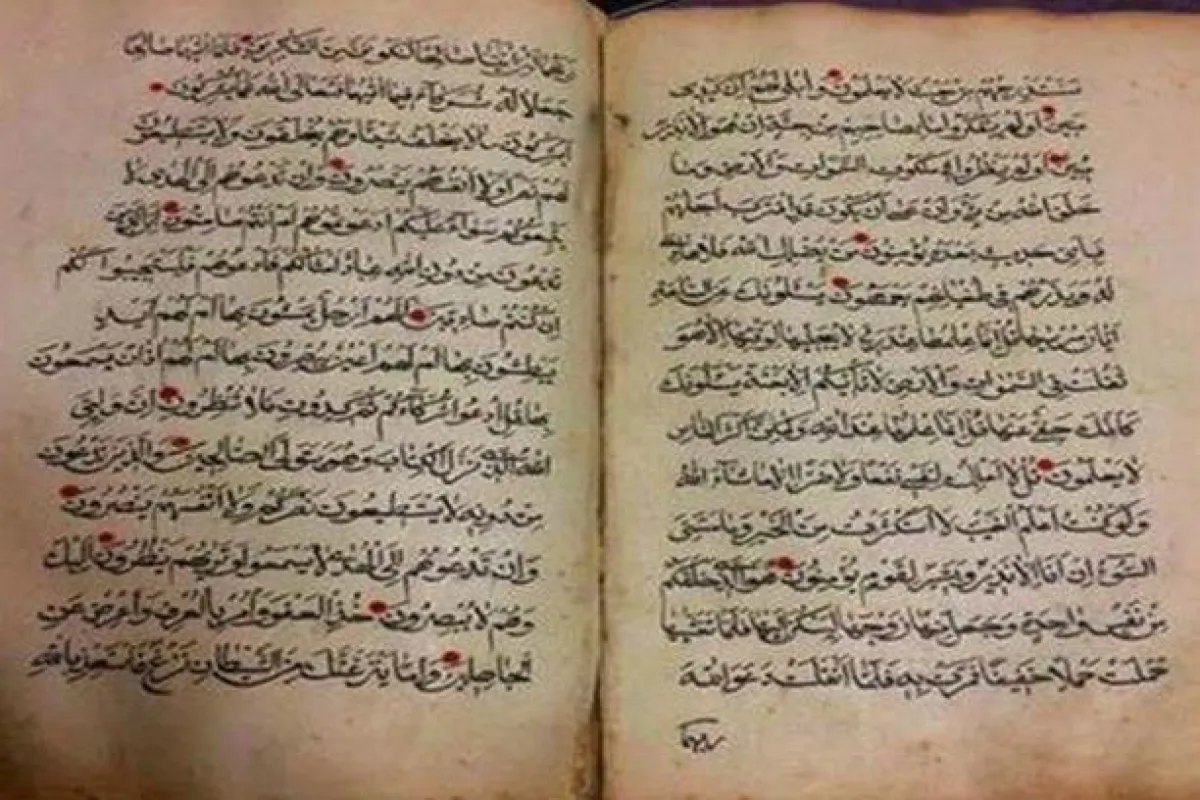 سنستدرجهم من حيث لا يعلمون واملى لهم ان كيدى
متين اولم يتفكروا ما بصاحبهم من جنة ان هو الا نذير
مبين اولم ينظروا فى ملكوت السموات والارض وما
خلق الله من شئ وان عسى ان يكون قد اقترب اجلهم
فباى حديث بعده يؤمنون من يضلل الله فلا هادى
له ويذرهم فى طغيانهم يعمهون يسئلونك عن الساعة
ايان مرسيها قل انما علمها عند ربى لا يجليها لوقتها الا هو
ثقلت فى السموات والارض لا تأتيكم الا بغتة يسئلونك
كانك حفى عنها قل انما علمها عند الله ولكن اكثر الناس
لا يعلمون قل لا املك لنفسى نفعا ولا ضرا الا ما شاء الله
ولو كنت اعلم الغيب لاستكثرت من الخير وما مسنى
السوء ان انا الا نذير وبشير لقوم يؤمنون هو الذى خلقكم
من نفس واحدة وجعل منها زوجها ليسكن اليها فلما تغشيها
حملت حملا خفيفا فمرت به فلما اثقلت دعوا الله
ربهما
ربهما لئن اتيتنا صالحا لنكونن من الشاكرين فلما اتيهما صالحا
جعلا له شركاء فيما اتيهما فتعالى الله عما يشركون
ايشركون ما لا يخلق شيئا وهم يخلقون ولا يستطيعون
لهم نصرا ولا انفسهم ينصرون وان تدعوهم الى الهدى لا
يتبعوكم سواء عليكم ادعوتموهم ام انتم صامتون ان الذين
تدعون من دون الله عباد امثالكم فادعوهم فليستجيبوا لكم
ان كنتم صادقين الهم ارجل يمشون بها ام لهم ايد
يبطشون بها ام لهم اعين يبصرون بها ام لهم اذان يسمعون
بها قل ادعوا شركاءكم ثم كيدون فلا تنظرون ان وليى
الله الذى نزل الكتاب وهو يتولى الصالحين والذين تدعون
من دونه لا يستطيعون نصركم ولا انفسهم ينصرون
وان تدعوهم الى الهدى لا يسمعوا وتريهم ينظرون اليك
وهم لا يبصرون خذ العفو وامر بالعرف واعرض عن
الجاهلين واما ينزغنك من الشيطان نزغ فاستعذ بالله